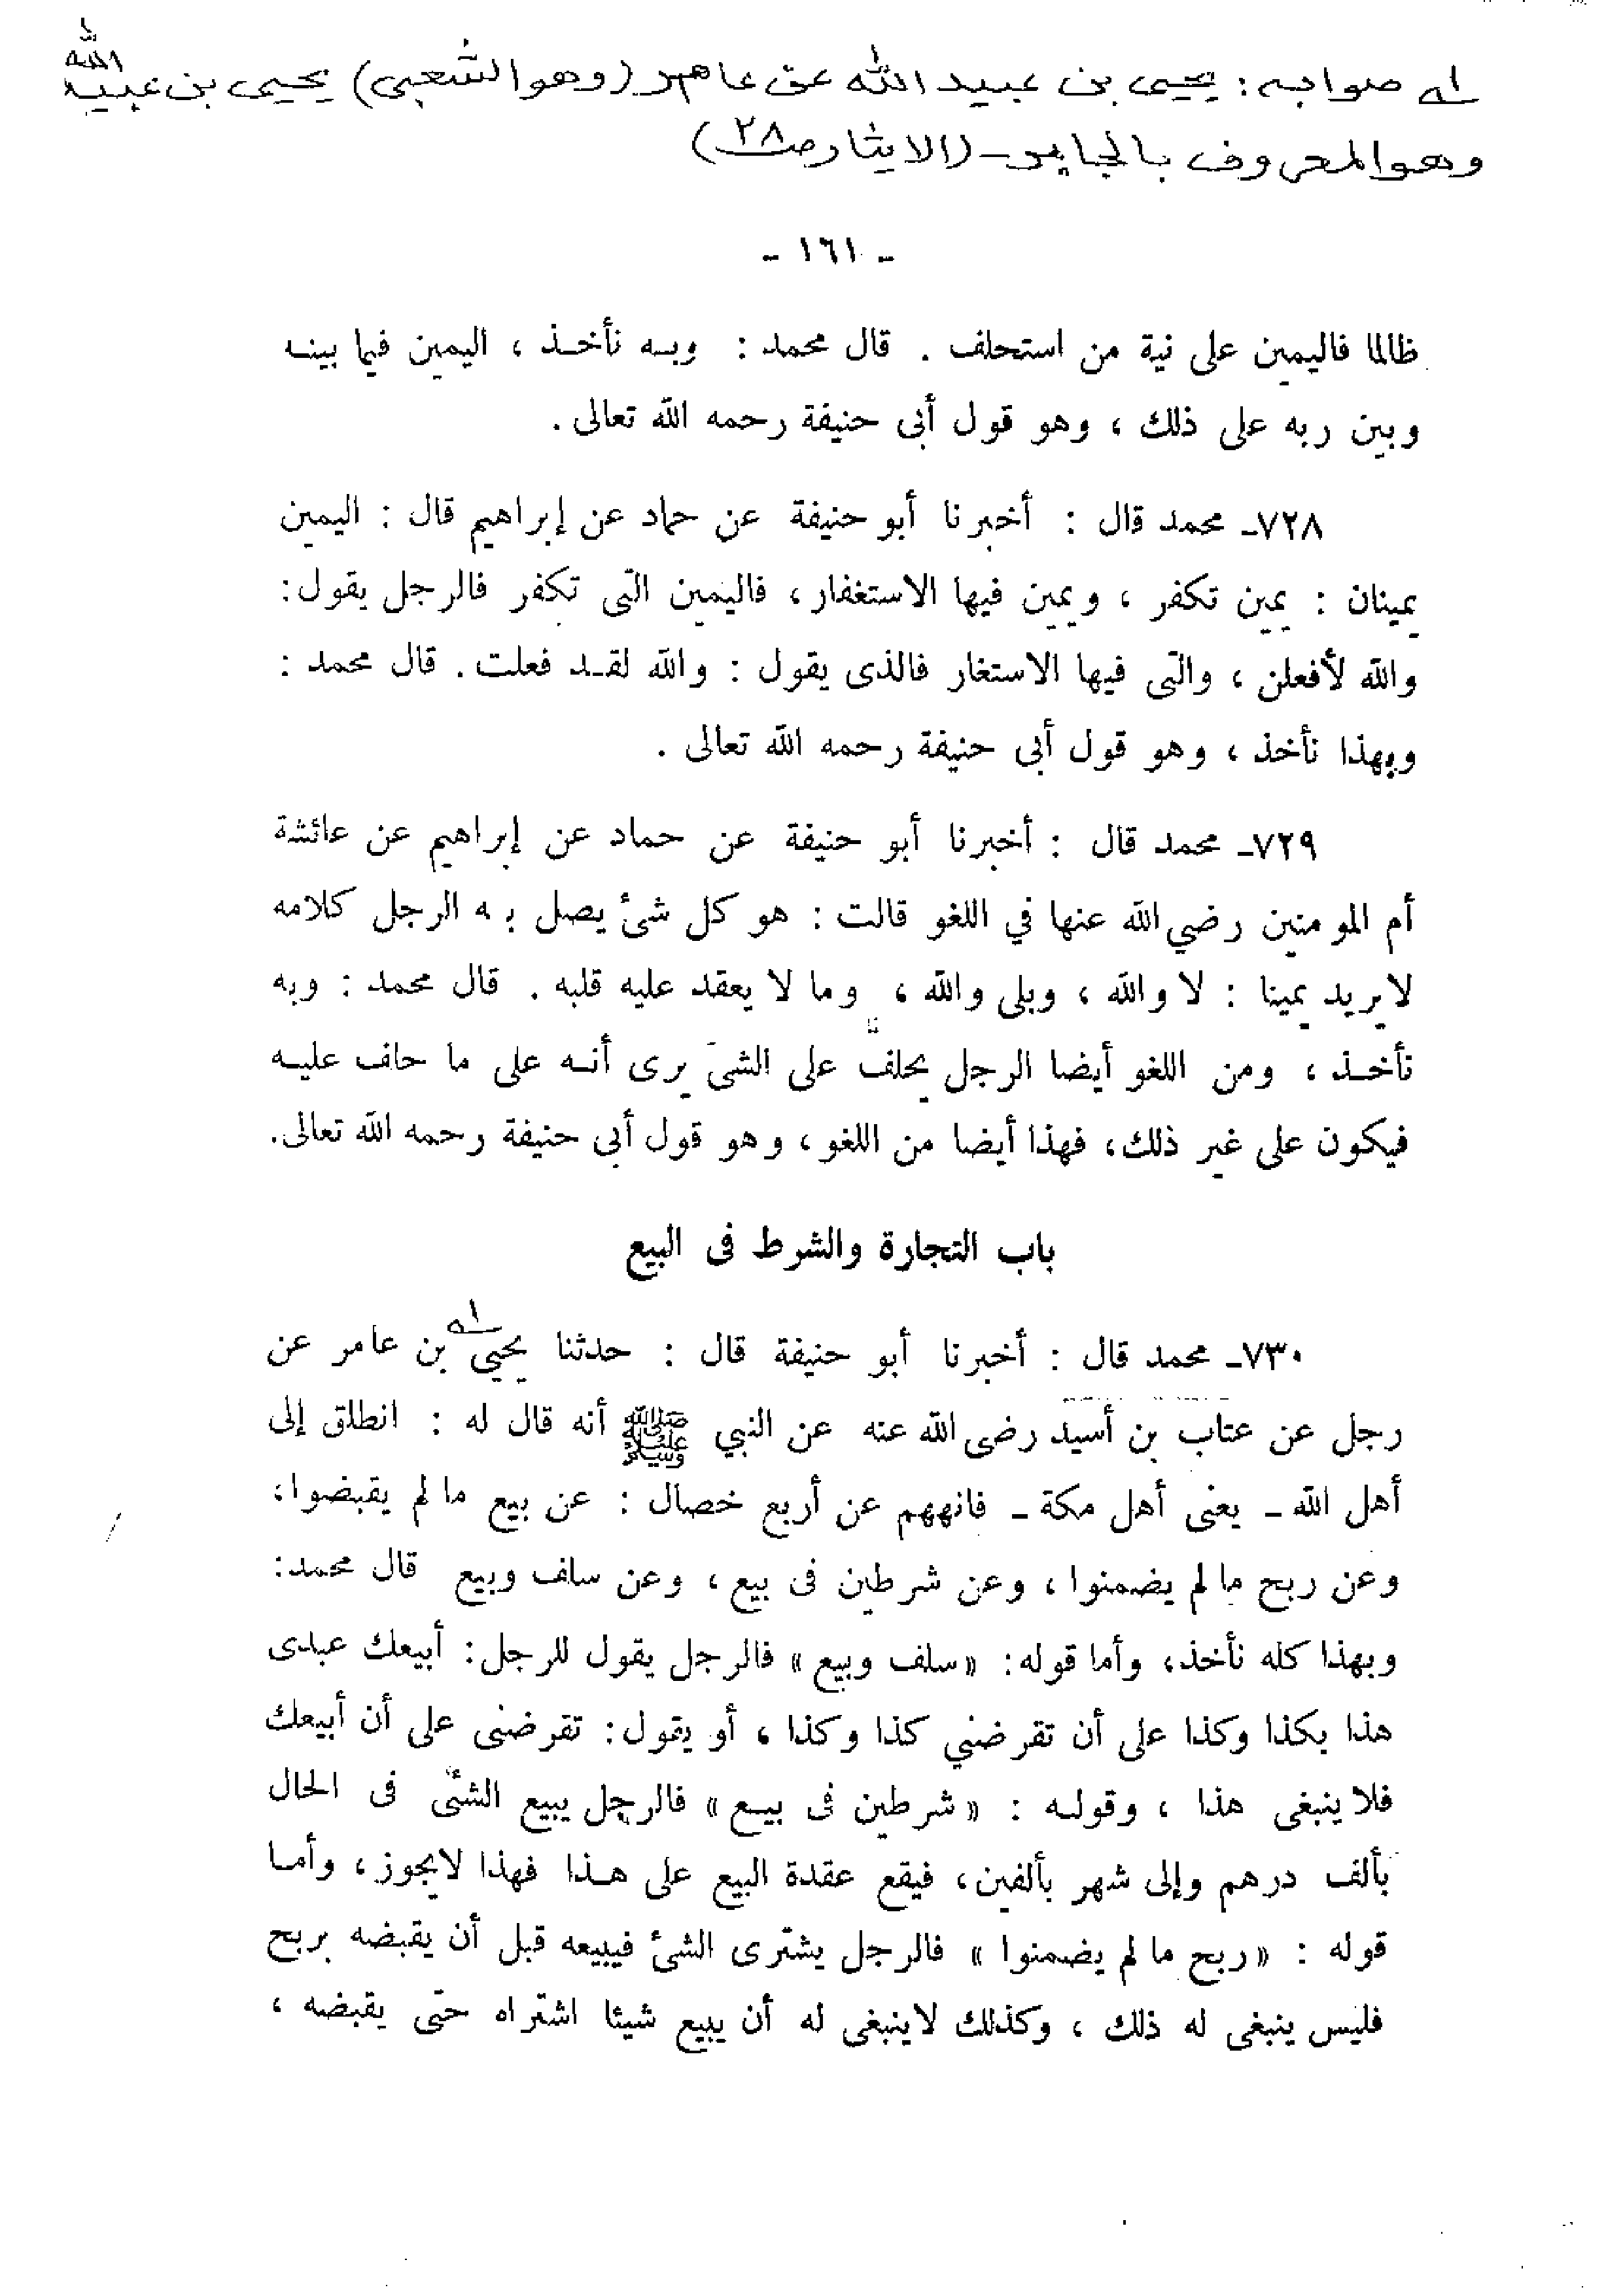 له صوابه: يحيى بن عبيد الله عن عامر (وهو الشعبى) يحيى بن عبيد الله
وهو المعروف بالجابر ـ (الايثار ص ٢٨)
- ١٦١ -
ظالما فاليمين على نية من استحلف . قال محمد : وبه نأخذ ، اليمين فيما بينه
وبين ربه على ذلك ، وهو قول أبى حنيفة رحمه الله تعالى .
٧٢٨ـ محمد قال : أخبرنا أبو حنيفة عن حماد عن إبراهيم قال : اليمين
يمينان : يمين تكفر ، ويمين فيها الاستغفار ، فاليمين التى تكفر فالرجل يقول :
والله لأفعلن ، والتى فيها الاستغار فالذى يقول : والله لقد فعلت . قال محمد :
وبهذا نأخذ ، وهو قول أبى حنيفة رحمه الله تعالى .
٧٢٩ـ محمد قال : أخبرنا أبو حنيفة عن حماد عن إبراهيم عن عائشة
أم المومنين رضي الله عنها في اللغو قالت : هو كل شئ يصل به الرجل كلامه
لا يريد يمينا : لا والله ، وبلى والله ، وما لا يعقد عليه قلبه . قال محمد : وبه
نأخذ ، ومن اللغو أيضا الرجل يحلف على الشئ يرى أنه على ما حلف عليه
فيكون على غير ذلك، فهذا أيضا من اللغو ، وهو قول أبى حنيفة رحمه الله تعالى.
باب التجارة والشرط فى البيع
٧٣٠ـ محمد قال : أخبرنا أبو حنيفة قال : حدثنا يحيى له بن عامر عن
رجل عن عتاب بن أسيد رضى الله عنه عن النبي ﷺ أنه قال له : انطلق إلى
أهل الله ـ يعنى أهل مكة ـ فانههم عن أربع خصال : عن بيع ما لم يقبضوا،
وعن ربح ما لم يضمنوا ، وعن شرطين فى بيع ، وعن سلف وبيع قال محمد:
وبهذا كله نأخذ، وأما قوله: «سلف وبيع» فالرجل يقول للرجل: أبيعك عبدى
هذا بكذا وكذا على أن تقرضني كذا وكذا ، أو يقول: تقرضنى على أن أبيعك
فلا ينبغى هذا ، وقوله : «شرطين فى بيع» فالرجل يبيع الشئى فى الحال
بألف درهم وإلى شهر بألفين، فيقع عقدة البيع على هذا فهذا لا يجوز ، وأما
قوله : «ربح ما لم يضمنوا» فالرجل يشترى الشئ فيبيعه قبل أن يقبضه بربح
فليس ينبغى له ذلك ، وكذلك لا ينبغى له أن يبيع شيئا اشتراه حتى يقبضه ،